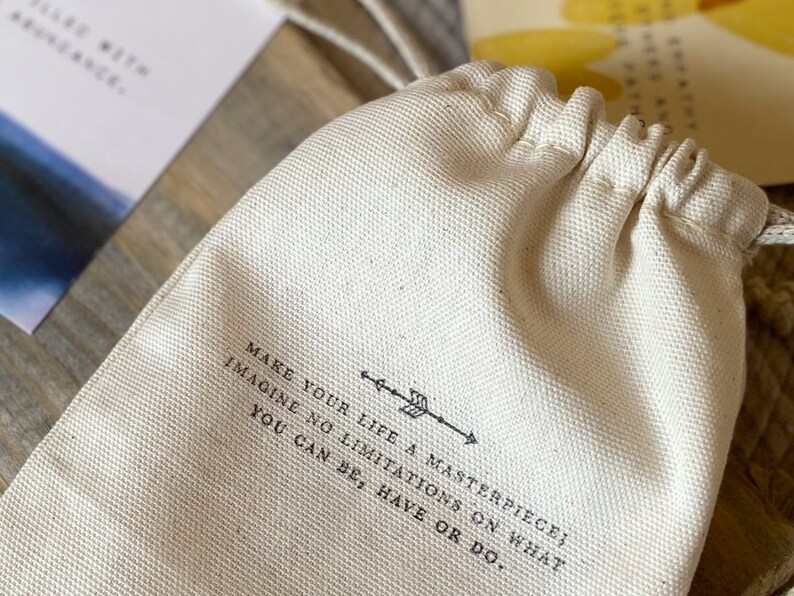 FILLED WITH
ABUNDANCE.
EMPATHY
AND
MAKE YOUR LIFE A MASTERPIECE;
IMAGINE NO LIMITATIONS ON WHAT
YOU CAN BE, HAVE OR DO.